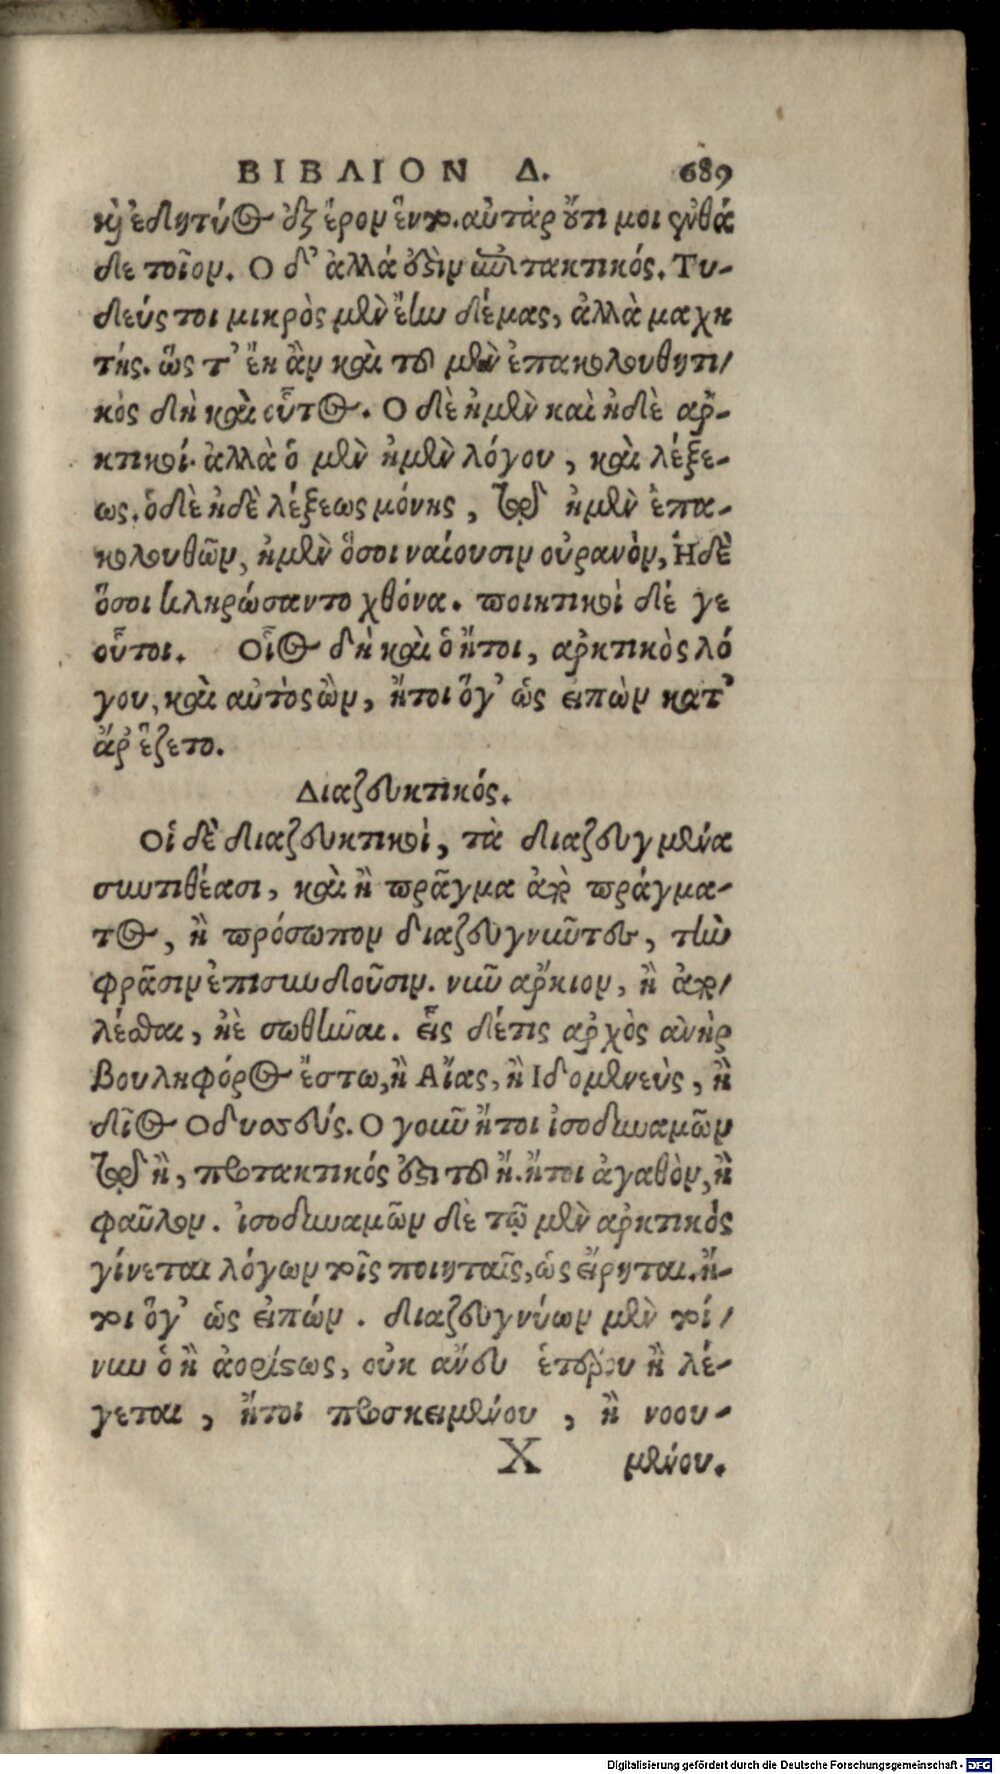 ΒΙΒΛΙΟΝ Δ. 689
καὶ ἐδητύος ἐξ ἔρον ἕντο. αὐτὰρ ὅτι μοι ἐνθά
δε τοῖον. Ο δ' ἀλλά ἐστὶν ὑποτακτικός. Τυ-
δεύς τοι μικρὸς μὲν ἔην δέμας, ἀλλὰ μαχη
τής. ὥς τ' ἐκ ἂν καὶ τοῦ μὲν ἐπακολουθητι/
κὸς δὴ καὶ οὗτος. Ο δὲ ἠμὲν καὶ ἠδὲ αρ-
κτικοί. ἀλλὰ ὁ μὲν ἠμὲν λόγου, καὶ λέξε-
ως. ὁ δὲ ἠδὲ λέξεως μόνης, τῷ δ' ἠμὲν ἐπα-
κολουθῶν, ἠμὲν ὅσοι ναίουσιν οὐρανὸν, Ηδὲ
ὅσοι κληρώσαντο χθόνα. ποιητικοὶ δέ γε
οὗτοι. Οἷος δὴ καὶ ὁ ἤτοι, αρκτικὸς λό
γου, καὶ αὐτὸς ὢν, ἤτοι ὅγ' ὡς ειπὼν κατ'
ἄρ ἕζετο.
Διαζευκτικός.
Οἱ δὲ διαζευκτικοὶ, τὰ διαζευγμένα
συντιθέασι, καὶ ἢ πρᾶγμα ἀπὸ πράγμα-
τος, ἢ πρόσωπον διαζευγνῦντες, τὴν
φρᾶσιν ἐπισυνδοῦσιν. νῦν αρκιον, ἢ ἀπο/
λέσθαι, ἠὲ σωθῆναι. εἷς δέ τις αρχὸς ἀνὴρ
Βουληφόρος ἔστω, ἢ Αἴας, ἢ Ιδομενεὺς, ἢ
δῖος Οδυσσεύς. Ο γοῦν ἤτοι ἰσοδυναμῶν
τῷ ἢ, προτακτικός ἐστι τοῦ ἤ. ἤτοι ἀγαθὸν, ἢ
φαῦλον. ἰσοδυναμῶν δὲ τῷ μὲν αρκτικὸς
γίνεται λόγων τοῖς ποιηταῖς, ὡς εἴρηται. ἤ-
τοι ὅγ' ὡς ειπών. διαζευγνύων μὲν τοί/
νυν ὁ ἢ ἀορίστως, οὐκ ἄνευ ἑτέρου ἢ λέ-
γεται, ἤτοι προσκειμένου, ἢ νοου-
Χ μένου.
Digitalisierung gefördert durch die Deutsche Forschungsgemeinschaft - DFG